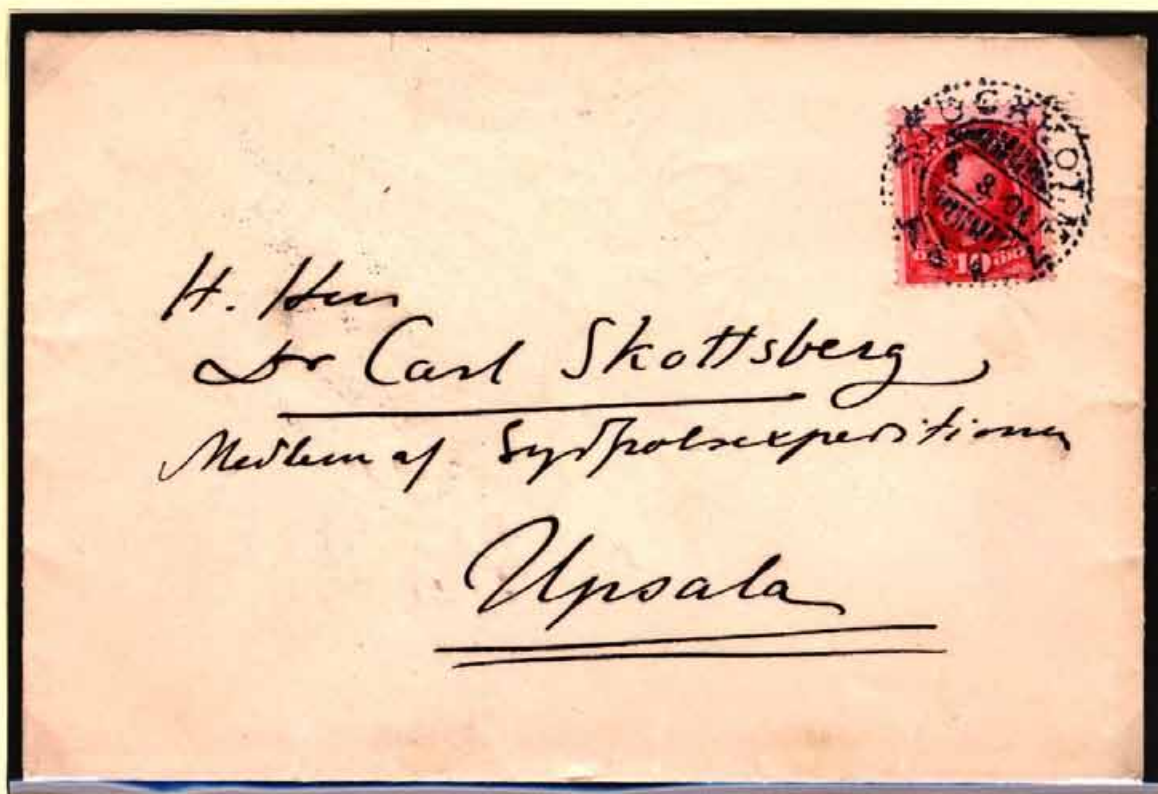 H. Herr
Dr Carl Skottsberg
Medlem af Sydpolsexpeditionen
Upsala
10